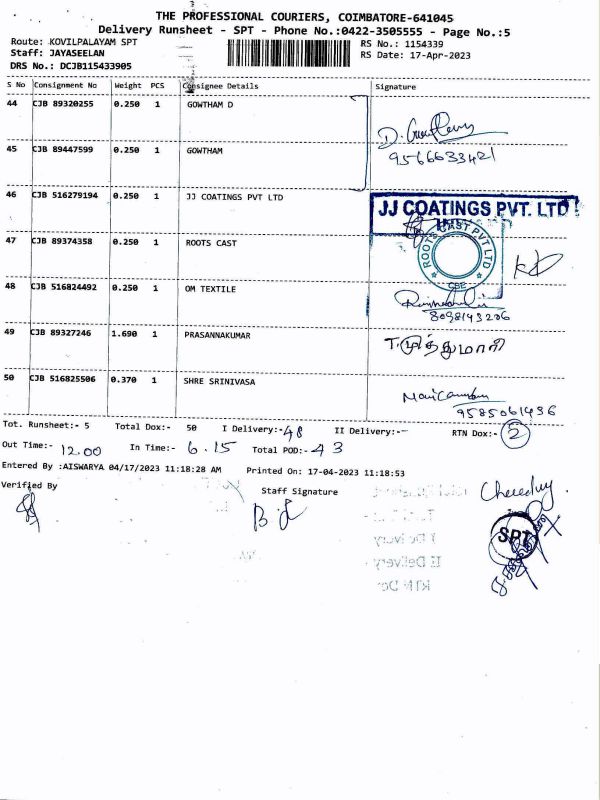 THE PROFESSIONAL COURIERS, COIMBATORE-641045
Delivery Runsheet - SPT - Phone No.:0422-3505555 - Page No.:5
Route: KOVILPALAYAM SPT
Staff: JAYASEELAN
DRS No.: DCJB115433905
RS No.: 1154339
RS Date: 17-Apr-2023
S No Consignment No Weight PCS Consignee Details Signature
44 CJB 89320255 0.250 1 GOWTHAM D
45 CJB 89447599 0.250 1 GOWTHAM 9566633421
46 CJB 516279194 0.250 1 JJ COATINGS PVT LTD
JJ COATINGS PVT. LTD
47 CJB 89374358 0.250 1 ROOTS CAST
ROOTS CAST PVT LTD
CBE
48 CJB 516824492 0.250 1 OM TEXTILE
8098193206
49 CJB 89327246 1.690 1 PRASANNAKUMAR T. முத்துமாரி
50 CJB 516825506 0.370 1 SHRE SRINIVASA
9585061936
Tot. Runsheet:- 5 Total Dox:- 50 I Delivery:- 48 II Delivery:-- RTN Dox:- 2
Out Time:- 12.00 In Time:- 6.15 Total POD:- 43
Entered By :AISWARYA 04/17/2023 11:18:28 AM Printed On: 17-04-2023 11:18:53
Verified By
Staff Signature
SPT